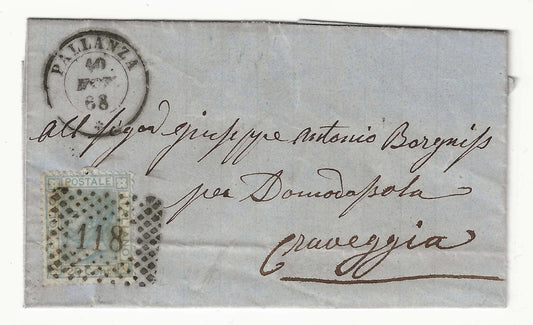 PALLANZA
10
68
All Sigor Giuseppe Antonio Borgnis
per Domodossola
Craveggia
POSTALE
118